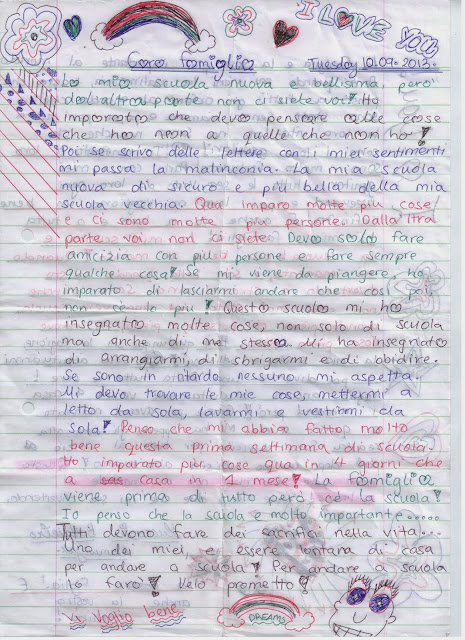 I LOVE YOU
Cara famiglia Tuesday 10.09.2013.
La mia scuola nuova è bellisima, però
dall'altra parte non ci siete voi! Ho
imparato che devo pensare alle cose
che ho non a quelle che non ho!
Poi se scrivo delle lettere con i miei sentimenti
mi passa la malinconia. La mia scuola
nuova di sicuro è più bella della mia
scuola vecchia. Qua imparo molte più cose
e ci sono molte più persone. Dalla'ltra
parte voi non ci siete. Devo solo fare
amicizia con più persone e fare sempre
qualche cosa! Se mi viene da piangere, ho
imparato di lasciarmi andare che così poi
non ce lo più! Questa scuola mi ha
insegnato molte cose, non solo di scuola
ma anche di me stessa. Mi ha insegnato
di arrangiarmi, di sbrigarmi e di obidire.
Se sono in ritardo nessuno mi aspetta.
Mi devo trovare le mie cose, mettermi a
letto da sola, lavarmi e vestirmi da
sola! Penso che mi abbia fatto molto
bene questa prima settimana di scuola.
Ho imparato più cose qua in 4 giorni che
a casa in 1 mese! La famiglia
viene prima di tutto però c'è la scuola!
Io penso che la scuola è molto importante.....
Tutti devono fare dei sacrifici nella vita...
Uno dei miei, è essere lontana di casa
per andare a scuola! Per andare a scuola
lo farò! Velo prometto!
Vi voglio bene
DREAMS